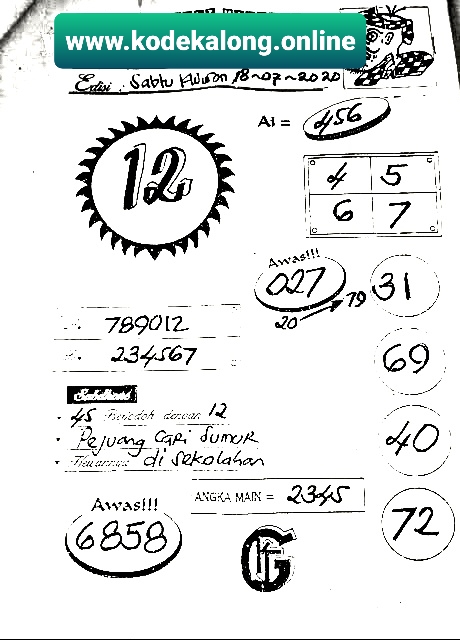 www.kodekalong.online
Edisi : Sabtu Kliwon 18-07-2020
AI = 456
12
4 5
6 7
Awas!!!
027
20 79
31
789012
234567
69
45 dengan 12
Pejuang Cari Sumur
di sekolahan
40
ANGKA MAIN = 2345
Awas!!!
6858
72